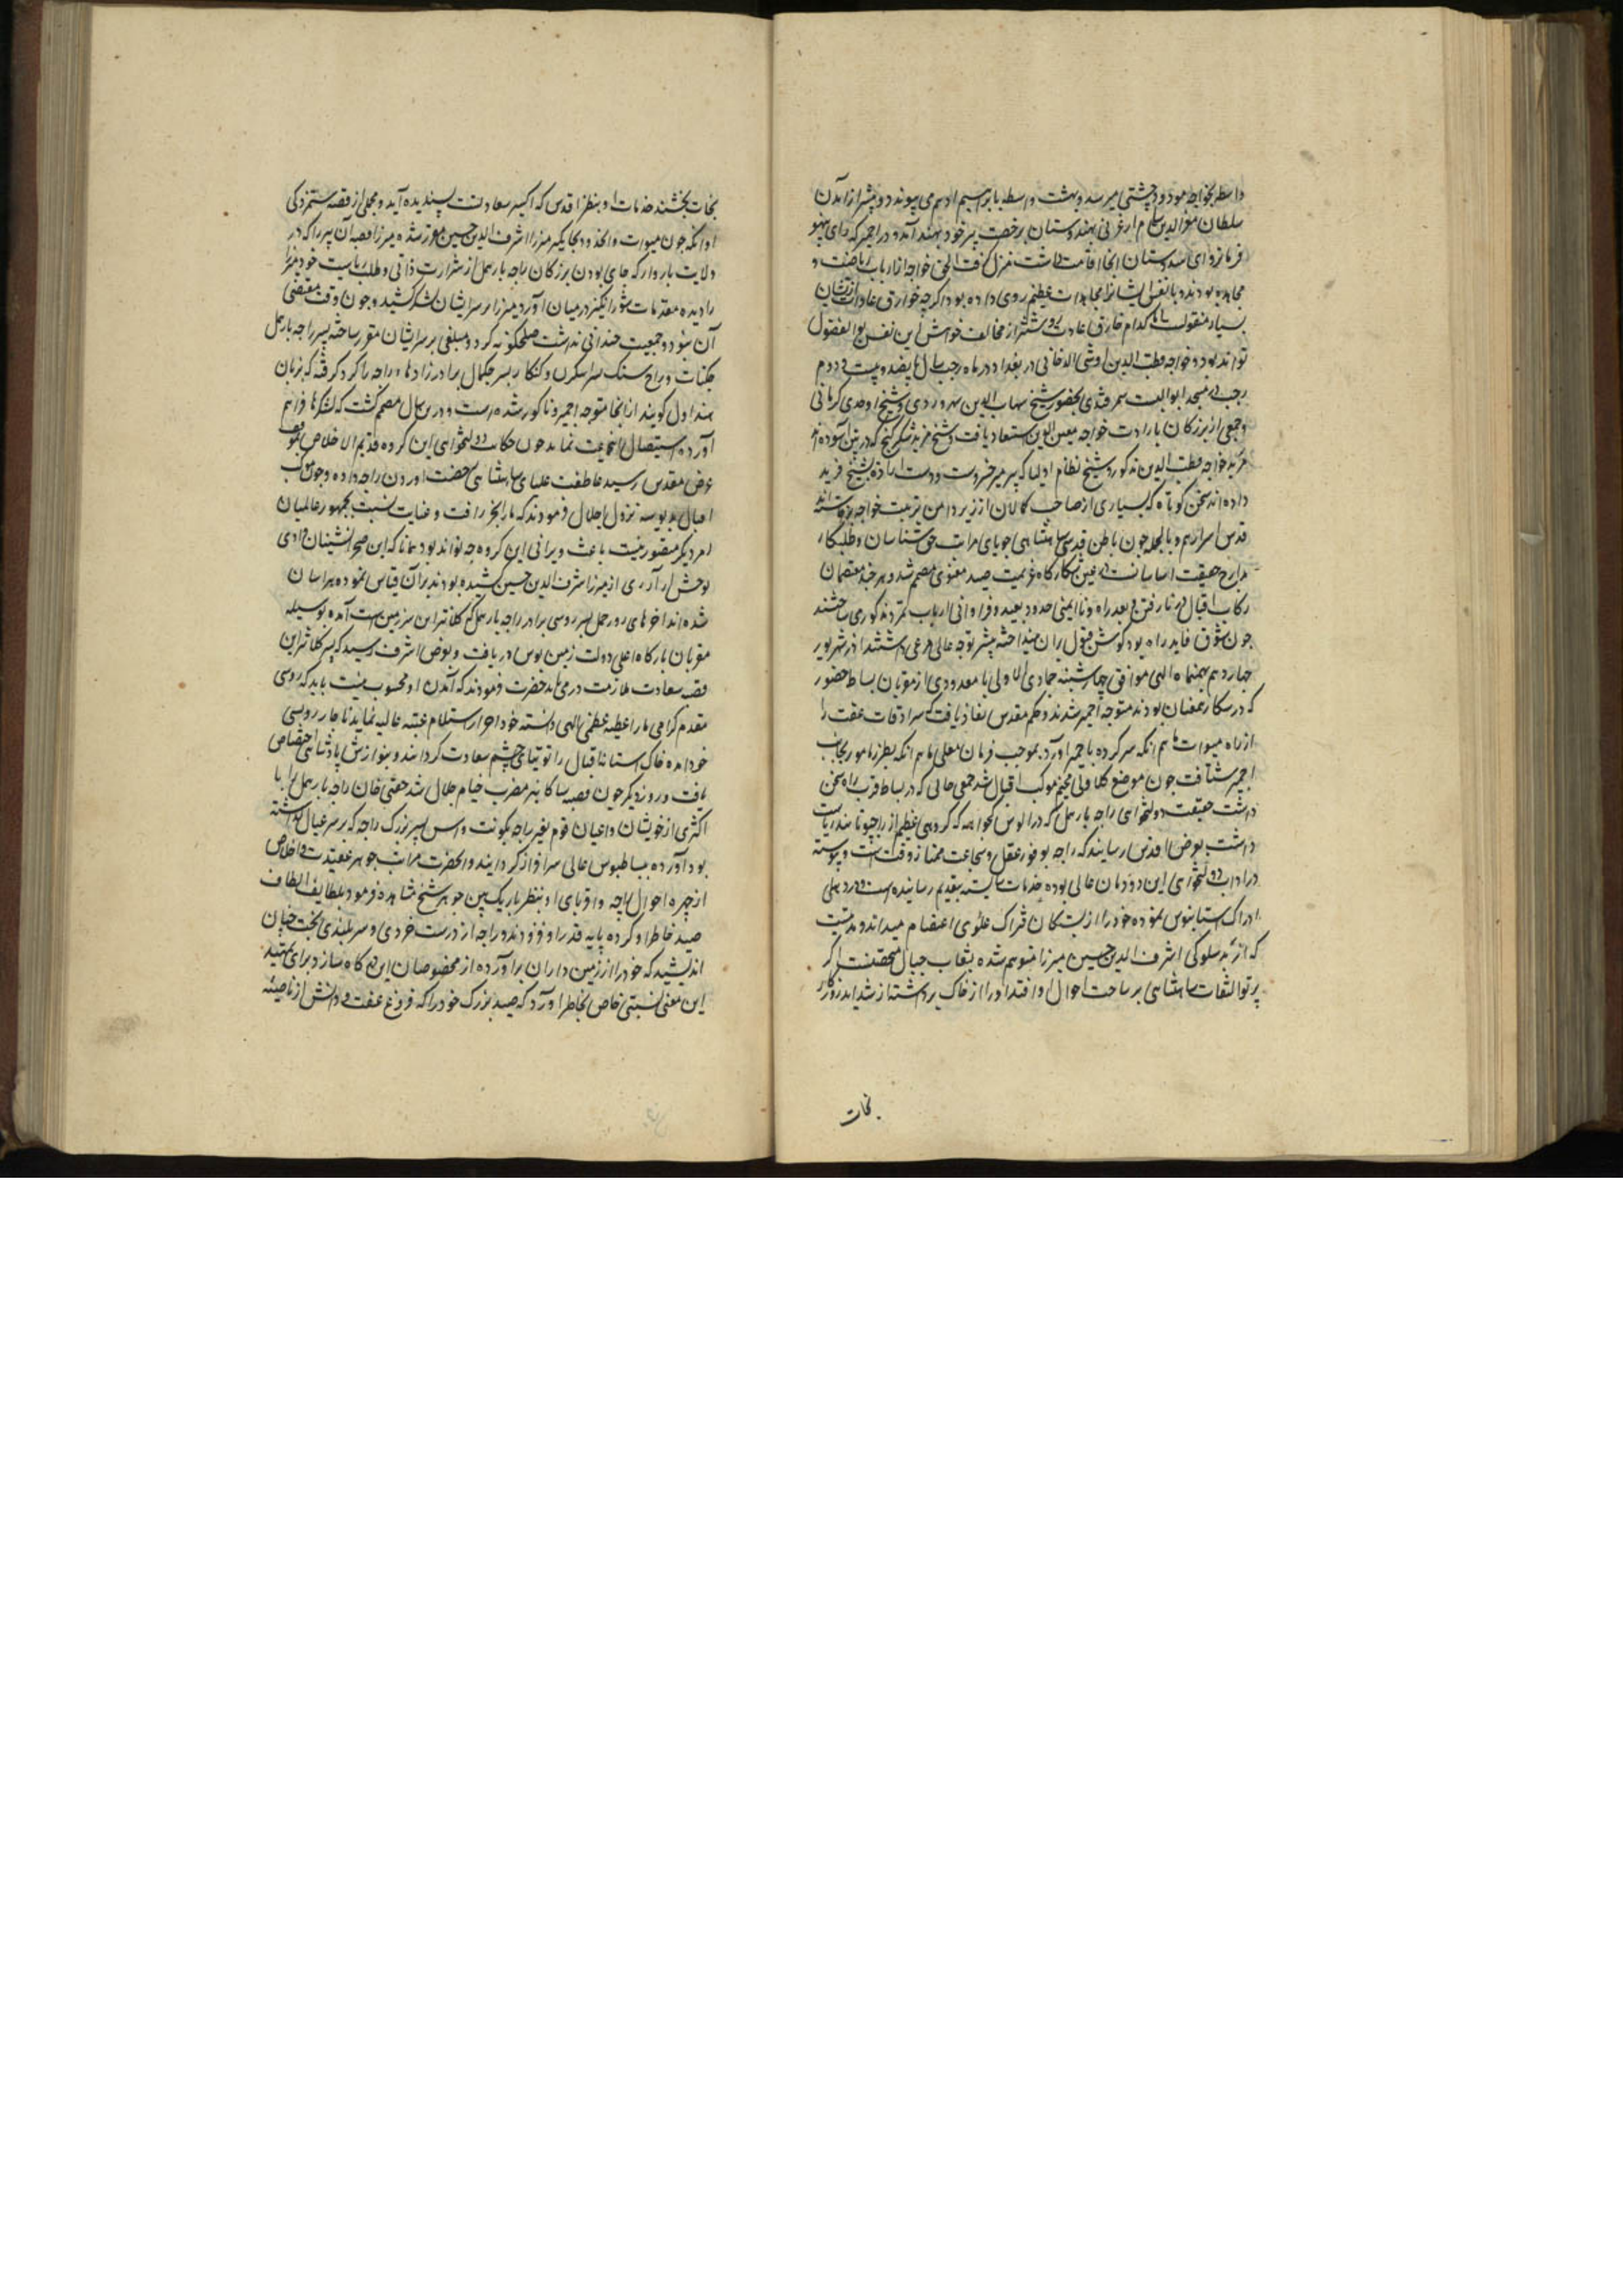 واسطه بخواجه مودود چشتی میرسد و بهشت واسطه بابراهیم ادهم می پیوندد و پیشتر از آمدن
سلطان معزالدین سام از غزنی بهندوستان برخصت پیر خود بهند آمد و در اجمیر که رای پتهورا
فرمانروای هندوستان آنجا اقامت داشت منزل گرفت الحق خواجه از ارباب ریاضت و
مجاهده بودند و با نفس ایشانرا مجاهدات عظیم روی داده بود اگرچه خوارق عادات از ایشان
بسیار منقولست اما کدام خارق عادت روشنتر از مخالفت خواهش این نفس بوالفضول
تواند بود و خواجه قطب الدین اوشی در بغداد در ماه رجب سال پانصد و بیست و دوم
رجب در مسجد ابواللیث سمرقندی بحضور شیخ شهاب الدین سهروردی و شیخ اوحدی کرمانی
و جمعی از بزرگان بارادت خواجه معین الدین استعاد یافت و شیخ فرید شکر گنج که در پتن آسوده اند
مرید خواجه قطب الدین مذکورند و شیخ نظام اولیا که پیر میر خسروست دست ارادت بشیخ فرید
داده اند سخن کوتاه که بسیاری از صاحب کمالان از زیر دامن تربیت خواجه برخاسته اند
قدس اسرارهم و بالجمله چون باطن قدسی شاهنشاهی جویای مراتب حق شناسان و طلبکار
مدارج حقیقت اساسانست در عین شکارگاه عزیمت صید معنوی مصمم شد و هر چند معتصمان
رکاب اقبال در نا رفتن و بعد راه و ناایمنی حدود بعید و فراوانی ارباب تمرد مذکور می ساختند
چون شوق قاید راه بود گوش قبول بران نینداخته بیشتر توجه عالی مرعی داشتند از شهریور
چهاردهم بهمنماه الهی موافق چهارشنبه جمادی الاولی با معدودی از مقربان بساط حضور
که در شکار همعنان بودند متوجه اجمیر شدند و حکم مقدس نفاذ یافت که سرادقات عفت را
از راه میوات ماهم انکه سر کرده باجمیر آورد بموجب فرمان معلی ماهم انکه بطرز مامور بجانب
اجمیر شتافت چون موضع کلاولی مخیم موکب اقبال شد جمعی حالی که در بساط قرب راه سخن
داشت حقیقت دولتخواهی راجه بارهمل که در الوس کچواهه که گروهی عظیم از راجپوتانند ریاست
داشت بعرض اقدس رسانیدند که راجه بوفور عقل و شجاعت ممتاز وقتست و پیوسته
در آداب دولتخواهی این دودمان عالی بوده خدمات شایسته بتقدیم رسانیده است و در دهلی
ادراک آستانبوس نموده خود را از بستگان فتراک علوی اعتصام میداند و مدتیست
که از بد سلوکی شرف الدین حسین میرزا متوهم شده بشعاب جبال متحصنست اگر
پرتو التفات شاهنشاهی بر ساحت احوال او افتد و او را از خاک برداشته از شداید روزگار
نجات
نجات بخشند خدمات او بنظر اقدس که اکسیر سعادتست پسندیده آید و مجملی از قصه ستمزدگی
او آنکه چون میوات و آنحدود بجایگیر میرزا شرف الدین حسین مقرر شده میرزا قصبه آن پیر را که در
ولایت ماروار که جای بودن بزرگان راجه بارهمل از شرارت ذاتی و طلب ریاست خود میرزا
را دیده مقدمات شورانگیز در میان آورد میرزا بر سر ایشان لشکر کشید و چون وقت مقتضی
آن نبود و جمعیت چندانی نداشت صلح گونه کرد و مبلغی بر سر ایشان مقرر ساخته پسر راجه بارهمل
جکنات و راج سنگ پسر اسکرن و کنکار پسر جکمال برادر زادهای راجه را گرو گرفته که بزبان
هند اول گویند از آنجا متوجه اجمیر و ناگور شده است و درین سال مصمم گشت که لشکرها فراهم
آورده استیصال این جماعت نماید چون حکایت دولتخواهی این گروه قدیم الاخلاص بموقف
عرض مقدس رسید عاطفت علیای شاهنشاهی رخصت آوردن راجه داده و چون موکب
اقبال بدیوسه نزول اجلال فرمودند که ما را بجز رافت و عنایت نسبت بجمهور عالمیان
امر دیگر متصور نیست باعث ویرانی این گروه چه تواند بود همانا که این صحرا نشینان وادی
توحش آزاری از میرزا شرف الدین حسین کشیده بودند بران قیاس نموده هراسان
شده اند آخرهای روز جیمل پسر روپسی برادر راجه بارهمل که کلانتر این سرزمین است آمده بوسیله
مقربان بارگاه اعلی دولت زمین بوس دریافت و بعرض اشرف رسید که پسر کلانتر این
قصبه سعادت ملازمت در می یابد حضرت فرمودند که آمدن او محسوب نیست باید که روپسی
مقدم گرامی ما را عطیه عظمی الهی دانسته خود احراز استلام عتبه عالیه نماید ناچار روپسی
خود آمده خاک آستان اقبال را توتیای چشم سعادت گردانید و بنوازش پادشاهی اختصاص
یافت و روز دیگر چون قصبه سانگانیر مضرب خیام جلال شد چغتی خان راجه بارهمل را با
اکثری از خویشان و اعیان قوم بغیر راجه بگونت داس پسر بزرگ راجه که بر سر عیال گذاشته
بود آورده ببساط بوس عالی سرافراز گردانید و آنحضرت مراتب جوهر عقیدت و اخلاص
از چهره احوال راجه و اقربای او بنظر باریک بین جوهر شناسی مشاهده فرمود بلطایف الطاف
صید خاطر او کرده پایه قدر او افزودند و راجه از درست خردی و سربلندی بخت چنان
اندیشید که خود را از زمین داران برآورده از مخصوصان این درگاه سازد برای تمهید
این معنی نسبتی خاص بخاطر آورد که صبیه بزرگ خود را که فروغ عفت و دانش از ناصیه